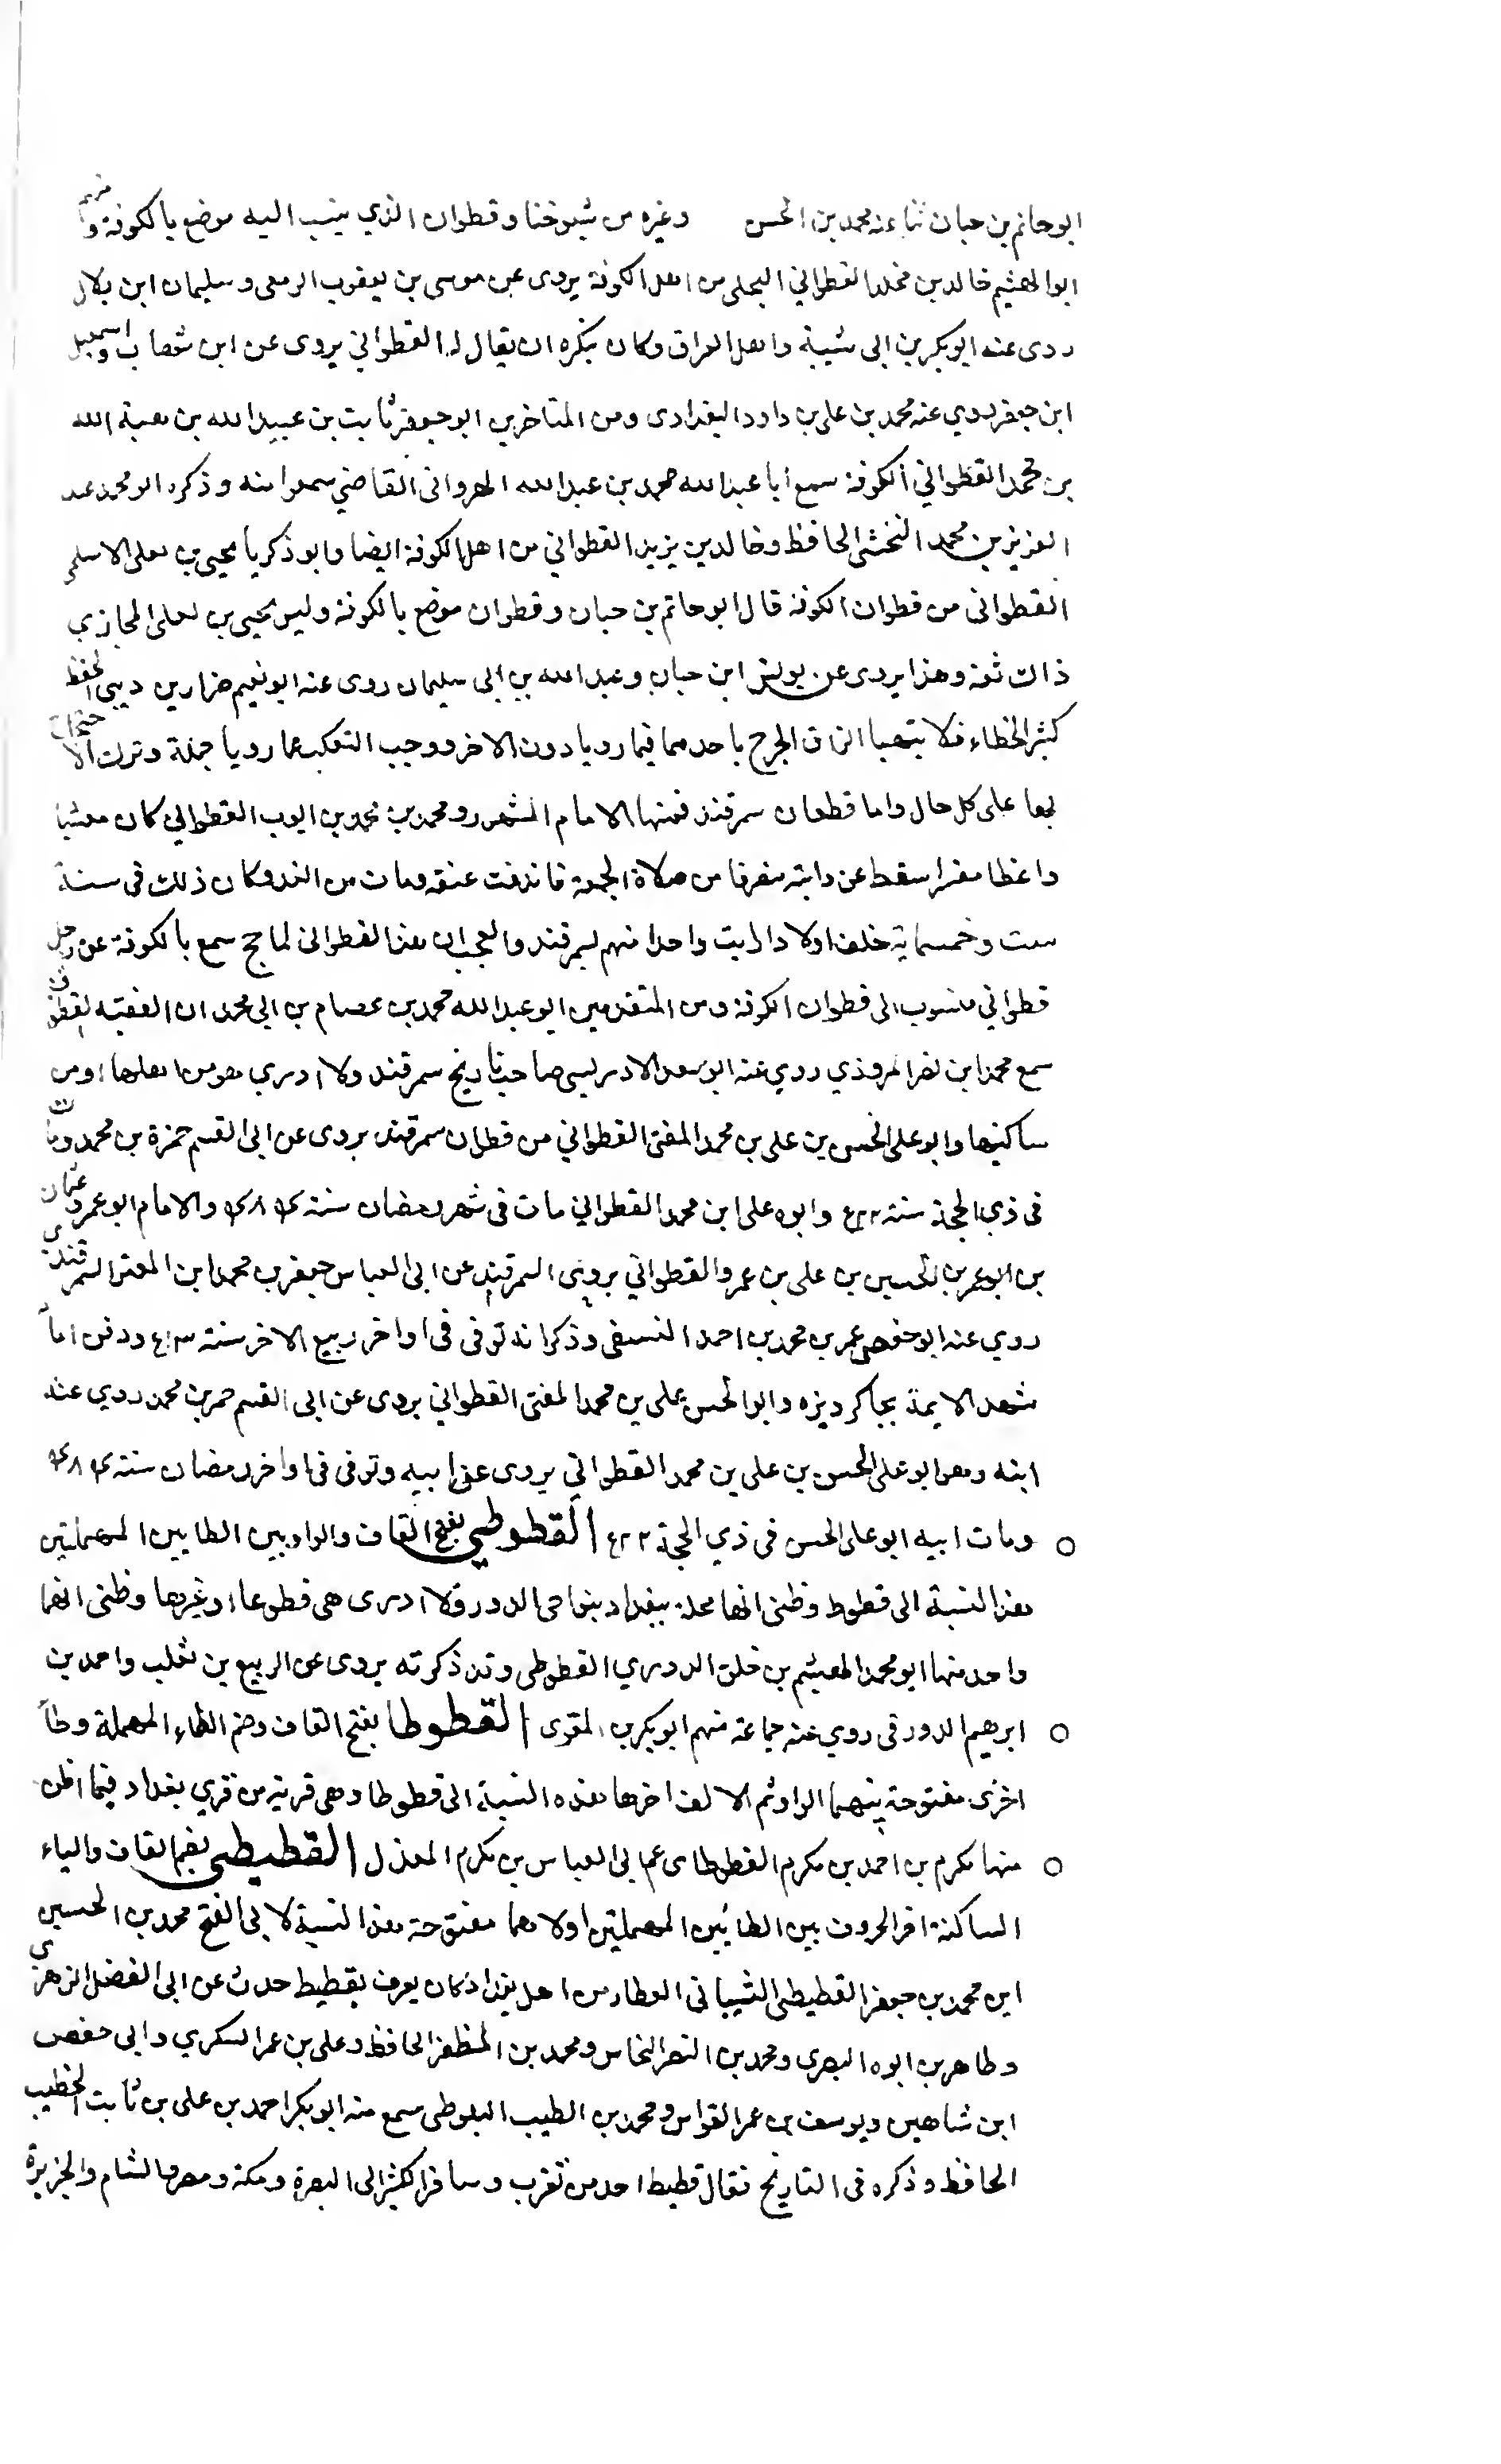 ابو حاتم بن حبان ثنا عنه محمد بن الحسن وغيره من شيوخنا وقطوان الذي ينسب اليه موضع بالكوفة و
ابو الهيثم خالد بن مخلد القطواني البجلي من اهل الكوفة يروى عن موسى بن يعقوب الزمعي وسليمان ابن بلال
روى عنه ابو بكر بن ابى شيبة واهل العراق وكان يكره ان يقال له القطواني يروى عن ابن شهاب واسمعيل
ابن جعفر روي عنه محمد بن على بن داود البغدادى ومن المتاخرين ابو جعفر ثابت بن عبيد الله بن هبة الله
بن محمد القطواني الكوفة سمع ابا عبد الله محمد بن عبد الله الهرواني القاضي سمعوا منه وذكره ابو محمد عبد
العزيز بن محمد النخشبي الحافظ وخالد بن يزيد القطواني من اهل الكوفة ايضا وابو ذكريا يحيى بن يعلى الاسلمي
القطوانى من قطوان الكوفة قال ابو حاتم بن حبان وقطوان موضع بالكوفة وليس يحيى بن يعلى المحازي
ذاك ثقة وهذا يروى عن يونس ابن حباب وعبد الله بن ابي سليمان روى عنه ابو نعيم ضرار بن ردئ الحفظ
كثير الخطاء فلا يتهيا الزاق الجرح باحدهما فيما رويا دون الاخر ووجب التنكب عما رويا جملة وترك الاحتجاج
بهما على كل حال واما قطوان سمرقند فمنها الامام المشهور محمد بن محمد بن ايوب القطواني كان مفتيا
واعظا مفسرا سقط عن دابته منصرفا من صلاة الجمعة فاندقت عنقه ومات من الغد وكان ذلك في سنة
ست وخمسماية خلف اولادا رايت واحدا منهم بسمرقند والعجب ان هذا القطوانى لما حج سمع بالكوفة عن رجل
قطواني منسوب الى قطوان الكوفة ومن المتقدمين ابو عبد الله محمد بن عصام بن ابى محمد ان الفقيه القطواني
سمع محمد ابن نصر المروذي روي عنه ابو سعد الادريسى صاحب تاريخ سمرقند ولا ادري هو من اهلها او من
ساكنيها وابو على الحسن بن على بن محمد المفتى القطواني من قطوان سمرقند يروى عن ابى القسم حمزة بن محمد ومات
في ذي الحجة سنة ٤٢٢ وابوه على ابن محمد القطواني مات في شهر رمضان سنة والامام ابو عمرو عثمان
بن ابو عمر بن الحسين بن على بن عمرو القطواني يروى السمرقندي عن ابى العباس جعفر بن محمد ابن المعتز السمرقندى
روي عنه ابو حفص عمر بن محمد بن احمد النسفى وذكر انه توفى في اواخر ربيع الاخر سنة ودفن اما
شهد الايمة بجاكرديزه وابو الحسن على بن محمد المفتى القطواني يروى عن ابى القسم حمزة بن محمد روي عنه
ابنه وهو ابو على الحسن بن على بن محمد القطواني يروى عن ابيه وتوفى في اواخر رمضان سنة
ومات ابيه ابو على الحسن في ذي الحجة ٤٢٢ القطوطي بفتح القاف والواو بين الطايين المهملتين
هذا النسبة الى قطوط وظني انها محلة ببغداد بنواحى الدور فلا ادرى هى قطوعا او غيرها وظنى انهما
واحد منها ابو محمد الهيثم بن خلف الدوري القطوطى وقد ذكرته يروى عن الربيع بن ثعلب واحمد بن
ابرهيم الدورقى روي عنه جماعة منهم ابو بكر بن المقرى القطوطا بفتح القاف وضم الطاء المهملة وطأ
اخرى مفتوحة بينهما الواو ثم الالف اخرها هذه النسبة الى قطوطا وهى قرية من قري بغداد فيما اظن
منها مكرم بن احمد بن مكرم القطوطاى عم ابى العباس بن مكرم المعدل القطيطي بضم القاف والياء
الساكنة اخر الحروف بين الطائين المهملتين اولاهما مفتوحة هذا النسبة لابى الفتح محمد بن الحسين
ابن محمد بن جعفر القطيطى الشيباني العطار من اهل بغداد كان يعرف بقطيط حدث عن ابى الفضل الزهري
وطاهر بن ابوه البصرى ومحمد بن النضر النخاس ومحمد بن المظفر الحافظ وعلى بن عمر السكري وابى حفص
ابن شاهين ويوسف بن عمر القواس ومحمد بن الطيب البلوطى سمع منه ابو بكر احمد بن على بن ثابت الخطيب
الحافظ وذكره في التاريخ فقال قطيط احد من تغرب وسافر الكثير الى البصرة ومكة ومصر والشام والجزيرة